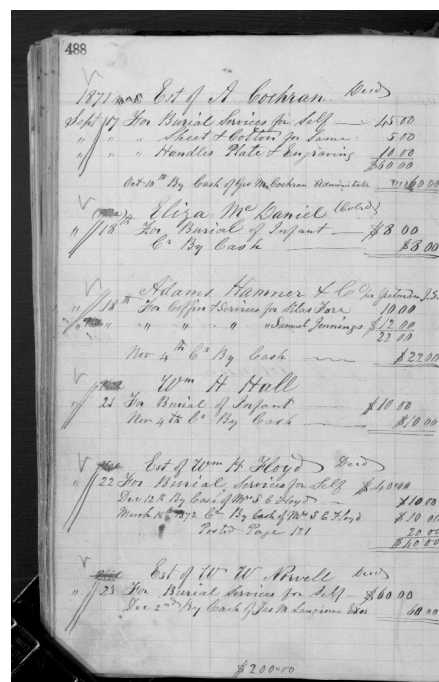 488
1871 Est of A Cochran Decd
Sept 17 For Burial Services for Self — 45 00
" " " Sheet & Cotton for Same 5 00
" " " Handles Plate & Engraving 10 00
$60 00
Oct 10th By Cash of Geo M Cochran Administrator 60 00
Eliza McDaniel (Cold)
" 18th For Burial of Infant — $8 00
Cr By Cash $8 00
Adams Hamner & Co per
" 18th For Coffin & Services for Silas Fore 10.00
" " " " " " " Samuel Jennings $12.00
22 00
Nov 4th Cr By Cash — $22 00
Wm H Hall
" 21 For Burial of Infant — $10 00
Nov 4th Cr By Cash — $10 00
Est of Wm H Floyd Decd
" 22 For Burial Services for Self $40 00
Dec 12th By Cash of Mrs S E Floyd — $10 00
March 1872 Cr By Cash of Mrs S E Floyd $10 00
Posted Page 121 20 00
$40 00
Est of W W Norvell Decd
" 25 For Burial Services for Self — $60 00
Dec 2nd By Cash of Jas M Langhorne Exor 60 00
$200.00